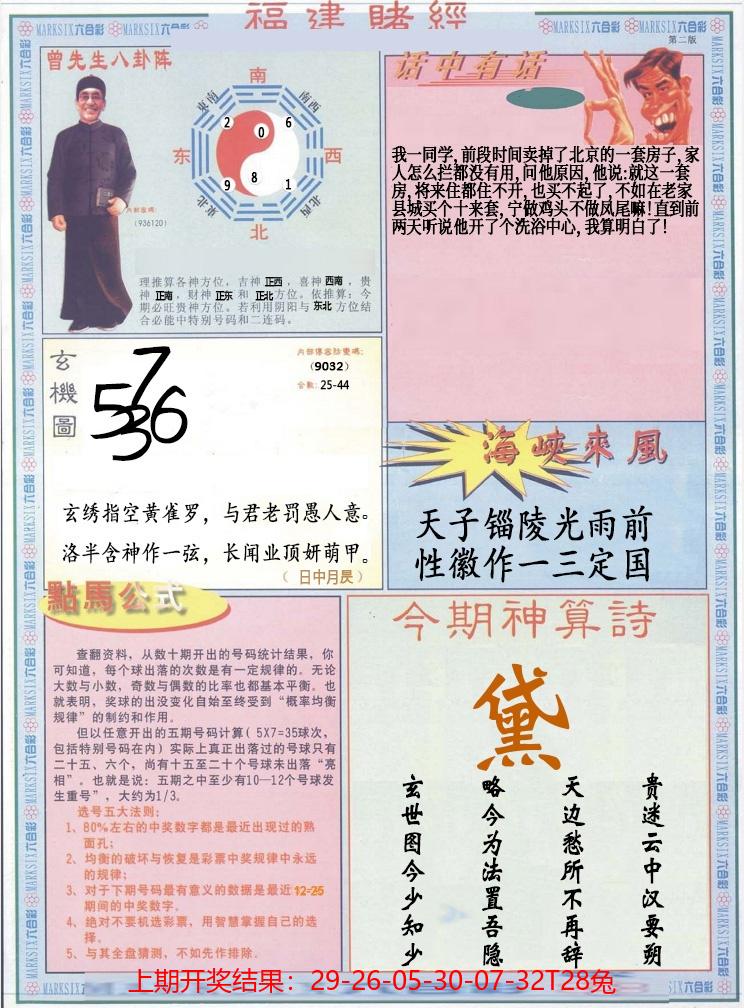 福建賭經
MARKSIX六合彩
第二版
曾先生八卦阵
南
东南
南西
2
0
6
东
西
9
8
1
东北
北西
北
内部密碼:
(936120)
理推算各神方位，吉神 正西 ，喜神 西南 ，贵
神 正南 ，财神 正东 和 正北 方位。依推算：今
期必旺贵神方位。若利用阴阳与 东北 方位结
合必能中特别号码和二连码。
话中有话
我一同学，前段时间卖掉了北京的一套房子，家
人怎么拦都没有用，问他原因，他说：就这一套
房，将来住都住不开，也买不起了，不如在老家
县城买个十来套，宁做鸡头不做凤尾嘛！直到前
两天听说他开了个洗浴中心，我算明白了！
玄機圖
7
536
3
内部傳密防變碼:
(9032)
合數: 25-44
玄绣指空黄雀罗，与君老罚愚人意。
洛半含神作一弦，长闻业顶妍萌甲。
（ 日中月昃 ）
海峽來風
天子锱陵光雨前
性徽作一三定国
點馬公式
查翻资料，从数十期开出的号码统计结果，你
可知道，每个球出落的次数是有一定规律的。无论
大数与小数，奇数与偶数的比率也都基本平衡。也
就表明，奖球的出没变化自始至终受到“概率均衡
规律”的制约和作用。
但以任意开出的五期号码计算( 5X7=35球次，
包括特别号码在内) 实际上真正出落过的号球只有
二十五、六个，尚有十五至二十个号球未出落“亮
相”。也就是说：五期之中至少有10—12个号球发
生重号”，大约为1/3。
选号五大法则：
1、80%左右的中奖数字都是最近出现过的熟
面孔；
2、均衡的破坏与恢复是彩票中奖规律中永远
的规律；
3、对于下期号码最有意义的数据是最近 12-25
期间的中奖数字。
4、绝对不要机选彩票，用智慧掌握自己的选
择。
5、与其全盘猜测，不如先作排除．
今期神算詩
黛
贵迷云中汉要朔
天边愁所不再辞
略今为法置吾隐
玄世图今少知少
上期开奖结果：29-26-05-30-07-32T28兔